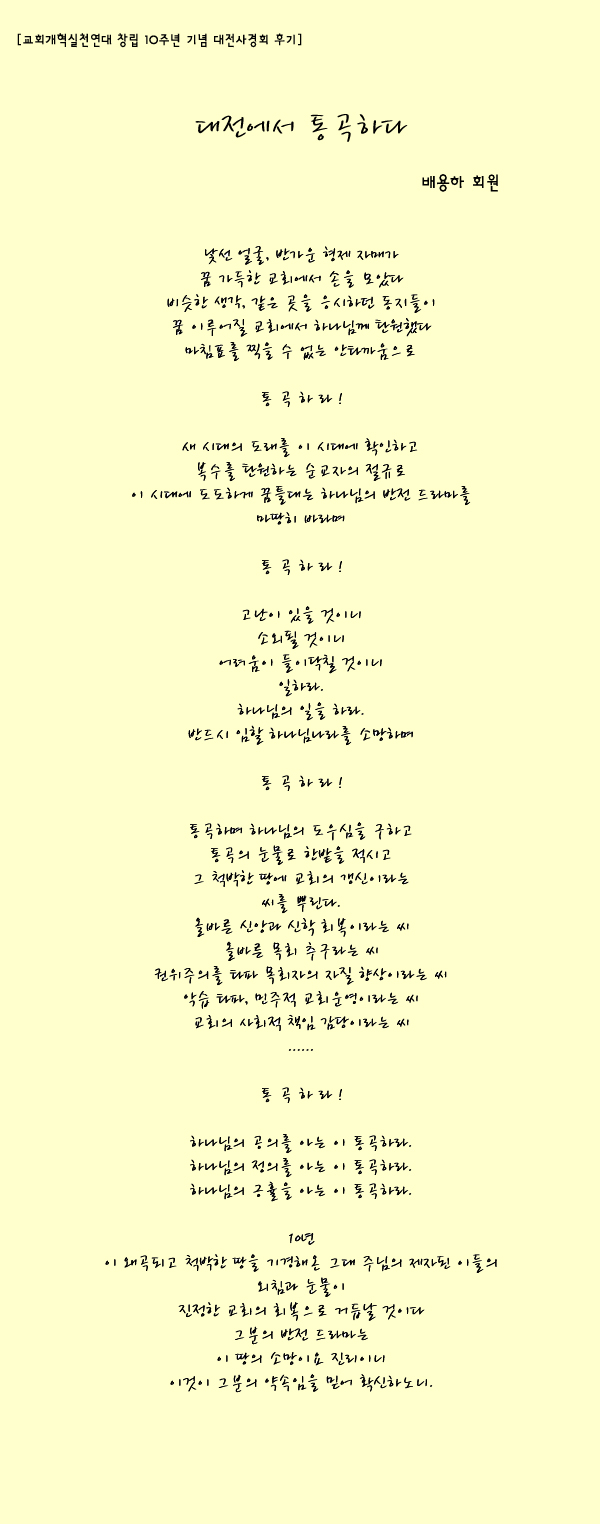 [교회개혁실천연대 창립 10주년 기념 대전사경회 후기]
대전에서 통곡하다
배용하 회원
낯선 얼굴, 반가운 형제 자매가
꿈 가득한 교회에서 손을 모았다
비슷한 생각, 같은 곳을 응시하던 동지들이
꿈 이루어질 교회에서 하나님께 탄원했다
마침표를 찍을 수 없는 안타까움으로
통 곡 하 라 !
새 시대의 도래를 이 시대에 확인하고
복수를 탄원하는 순교자의 절규로
이 시대에 도도하게 꿈틀대는 하나님의 반전 드라마를
마땅히 바라며
통 곡 하 라 !
고난이 있을 것이니
소외될 것이니
어려움이 들이닥칠 것이니
일하라.
하나님의 일을 하라.
반드시 임할 하나님나라를 소망하며
통 곡 하 라 !
통곡하며 하나님의 도우심을 구하고
통곡의 눈물로 한밭을 적시고
그 척박한 땅에 교회의 갱신이라는
씨를 뿌린다.
올바른 신앙과 신학 회복이라는 씨
올바른 목회 추구라는 씨
권위주의를 타파 목회자의 자질 향상이라는 씨
악습 타파, 민주적 교회운영이라는 씨
교회의 사회적 책임 감당이라는 씨
......
통 곡 하 라 !
하나님의 공의를 아는 이 통곡하라.
하나님의 정의를 아는 이 통곡하라.
하나님의 긍휼을 아는 이 통곡하라.
10년
이 왜곡되고 척박한 땅을 기경해온 그대 주님의 제자된 이들의
외침과 눈물이
진정한 교회의 회복으로 거듭날 것이다
그분의 반전 드라마는
이 땅의 소망이요 진리이니
이것이 그분의 약속임을 믿어 확신하노니.